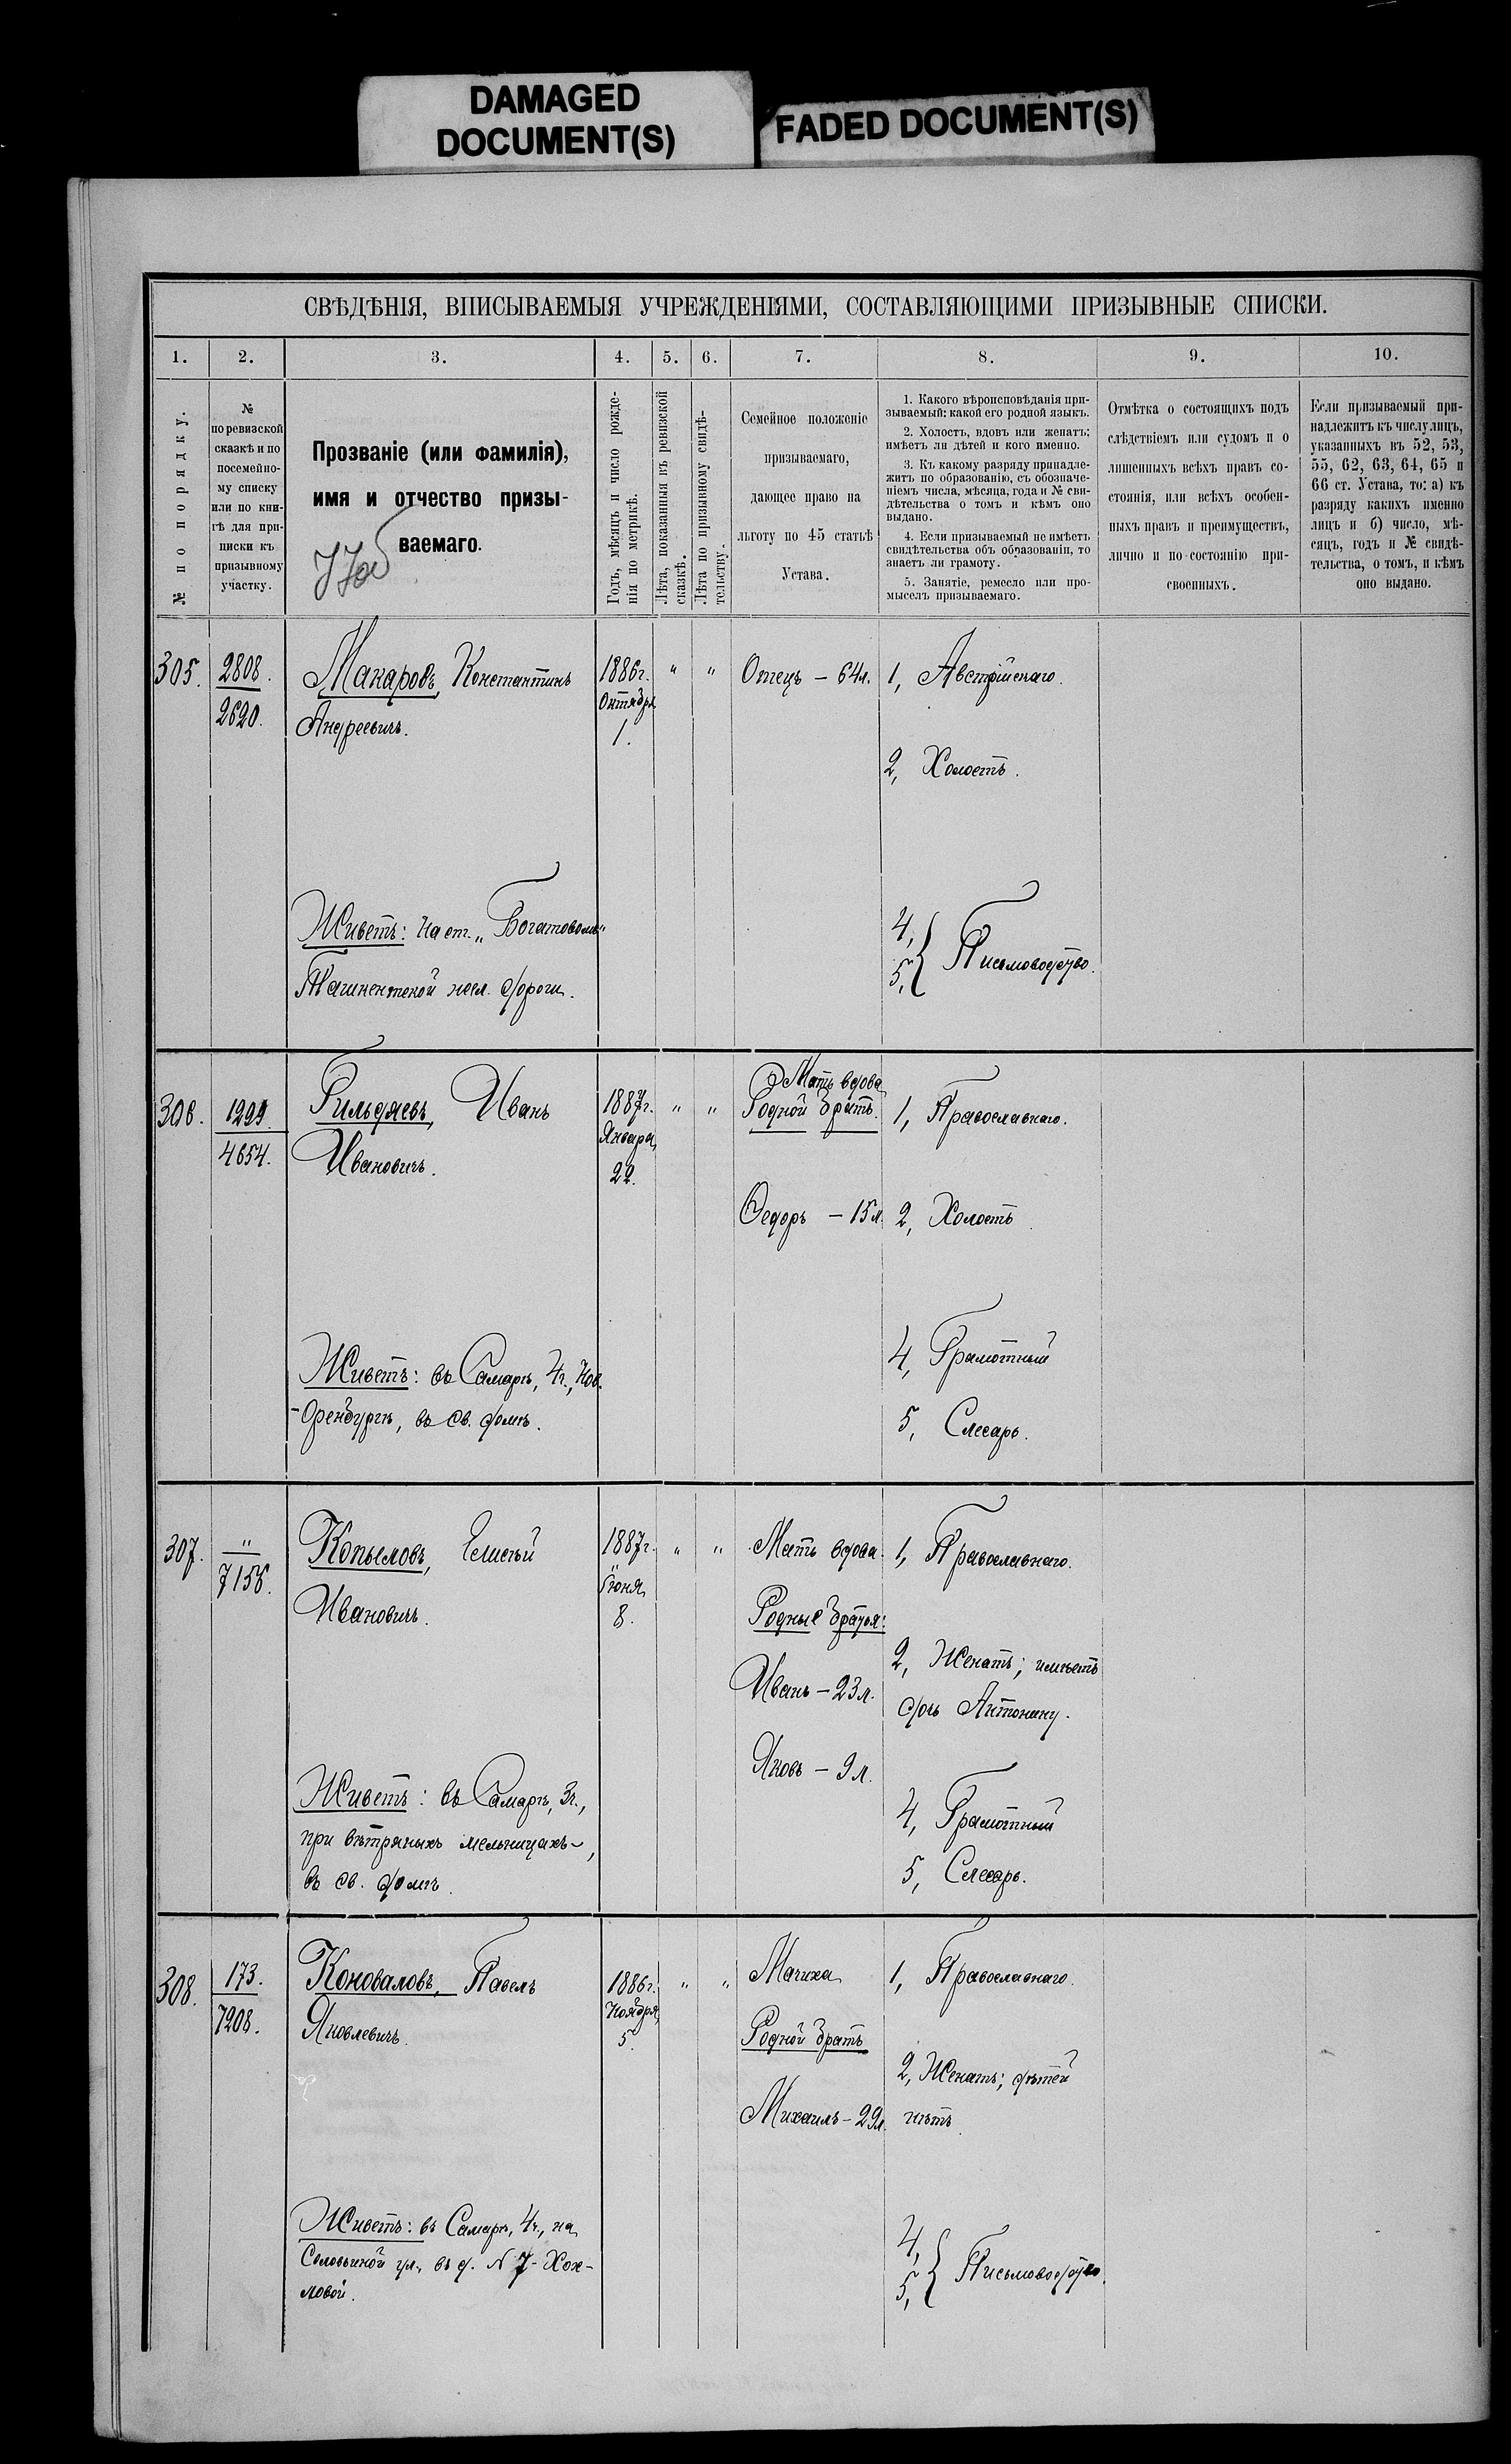 DAMAGED
DOCUMENT(S)
FADED DOCUMENT(S)
СВѢДѢНІЯ, ВПИСЫВАЕМЫЯ УЧРЕЖДЕНІЯМИ, СОСТАВЛЯЮЩИМИ ПРИЗЫВНЫЕ СПИСКИ.
1. 2. 3. 4. 5. 6. 7. 8. 9. 10.
№ по порядку.
№
по ревизской
сказкѣ и по
посемейно-
му списку
или по кни-
гѣ для при-
писки къ
призывному
участку.
Прозваніе (или фамилія),
имя и отчество призы-
ваемаго.
Годъ, мѣсяцъ и число рожде-
нія по метрикѣ.
Лѣта, показанныя въ ревизской
сказкѣ.
Лѣта по призывному свидѣ-
тельству.
Семейное положеніе
призываемаго,
дающее право на
льготу по 45 статьѣ
Устава.
1. Какого вѣроисповѣданія при-
зываемый: какой его родной языкъ.
2. Холостъ, вдовъ или женатъ;
имѣетъ ли дѣтей и кого именно.
3. Къ какому разряду принадле-
житъ по образованію, съ обозначе-
ніемъ числа, мѣсяца, года и № сви-
дѣтельства о томъ и кѣмъ оно
выдано.
4. Если призываемый не имѣетъ
свидѣтельства объ образованіи, то
знаетъ ли грамоту.
5. Занятіе, ремесло или про-
мыселъ призываемаго.
Отмѣтка о состоящихъ подъ
слѣдствіемъ или судомъ и о
лишенныхъ всѣхъ правъ со-
стоянія, или всѣхъ особен-
ныхъ правъ и преимуществъ,
лично и по состоянію при-
своенныхъ.
Если призываемый при-
надлежитъ къ числу лицъ,
указанныхъ въ 52, 53,
55, 62, 63, 64, 65 и
66 ст. Устава, то: а) къ
разряду какихъ именно
лицъ и б) число, мѣ-
сяцъ, годъ и № свидѣ-
тельства, о томъ, и кѣмъ
оно выдано.
305.
2808.
2620.
Макаровъ, Константинъ
Андреевичъ.
Живетъ: на ст. „Богатовомъ“
жел. дороги.
1886г.
Октября
1.
" "
Отецъ – 64л.
1, Австрійскаго.
2, Холостъ.
4,
5, } Письмоводство.
306.
1299.
4654.
Рильдяевъ, Иванъ
Ивановичъ.
Живетъ: въ Самарѣ, 4ч., Нов.
-Оренбургѣ, въ св. домѣ.
1887г.
Января
22.
" "
Мать вдова
Родной братъ.
Ѳедоръ – 15л.
1, Православнаго.
2, Холостъ
4, Грамотный
5, Слесарь.
307.
"
7158.
Копыловъ, Елисѣй
Ивановичъ.
Живетъ: въ Самарѣ, 3ч.,
при вѣтряныхъ мельницахъ,
въ св. домѣ.
1887г.
Іюня
8.
" "
Мать вдова.
Родные братья:
Иванъ – 23л.
Яковъ – 9л.
1, Православнаго.
2, Женатъ; имѣетъ
дочь Антонину.
4, Грамотный
5, Слесарь.
308.
173.
7208.
Коноваловъ, Павелъ
Яковлевичъ.
Живетъ: въ Самарѣ, 4ч., на
Соловьиной ул., въ д. N 7 – Хох-
ловой.
1886г.
Ноября
5.
" "
Мачиха
Родной братъ
Михаилъ – 29л.
1, Православнаго.
2, Женатъ; дѣтей
нѣтъ.
4,
5, } Письмоводство.